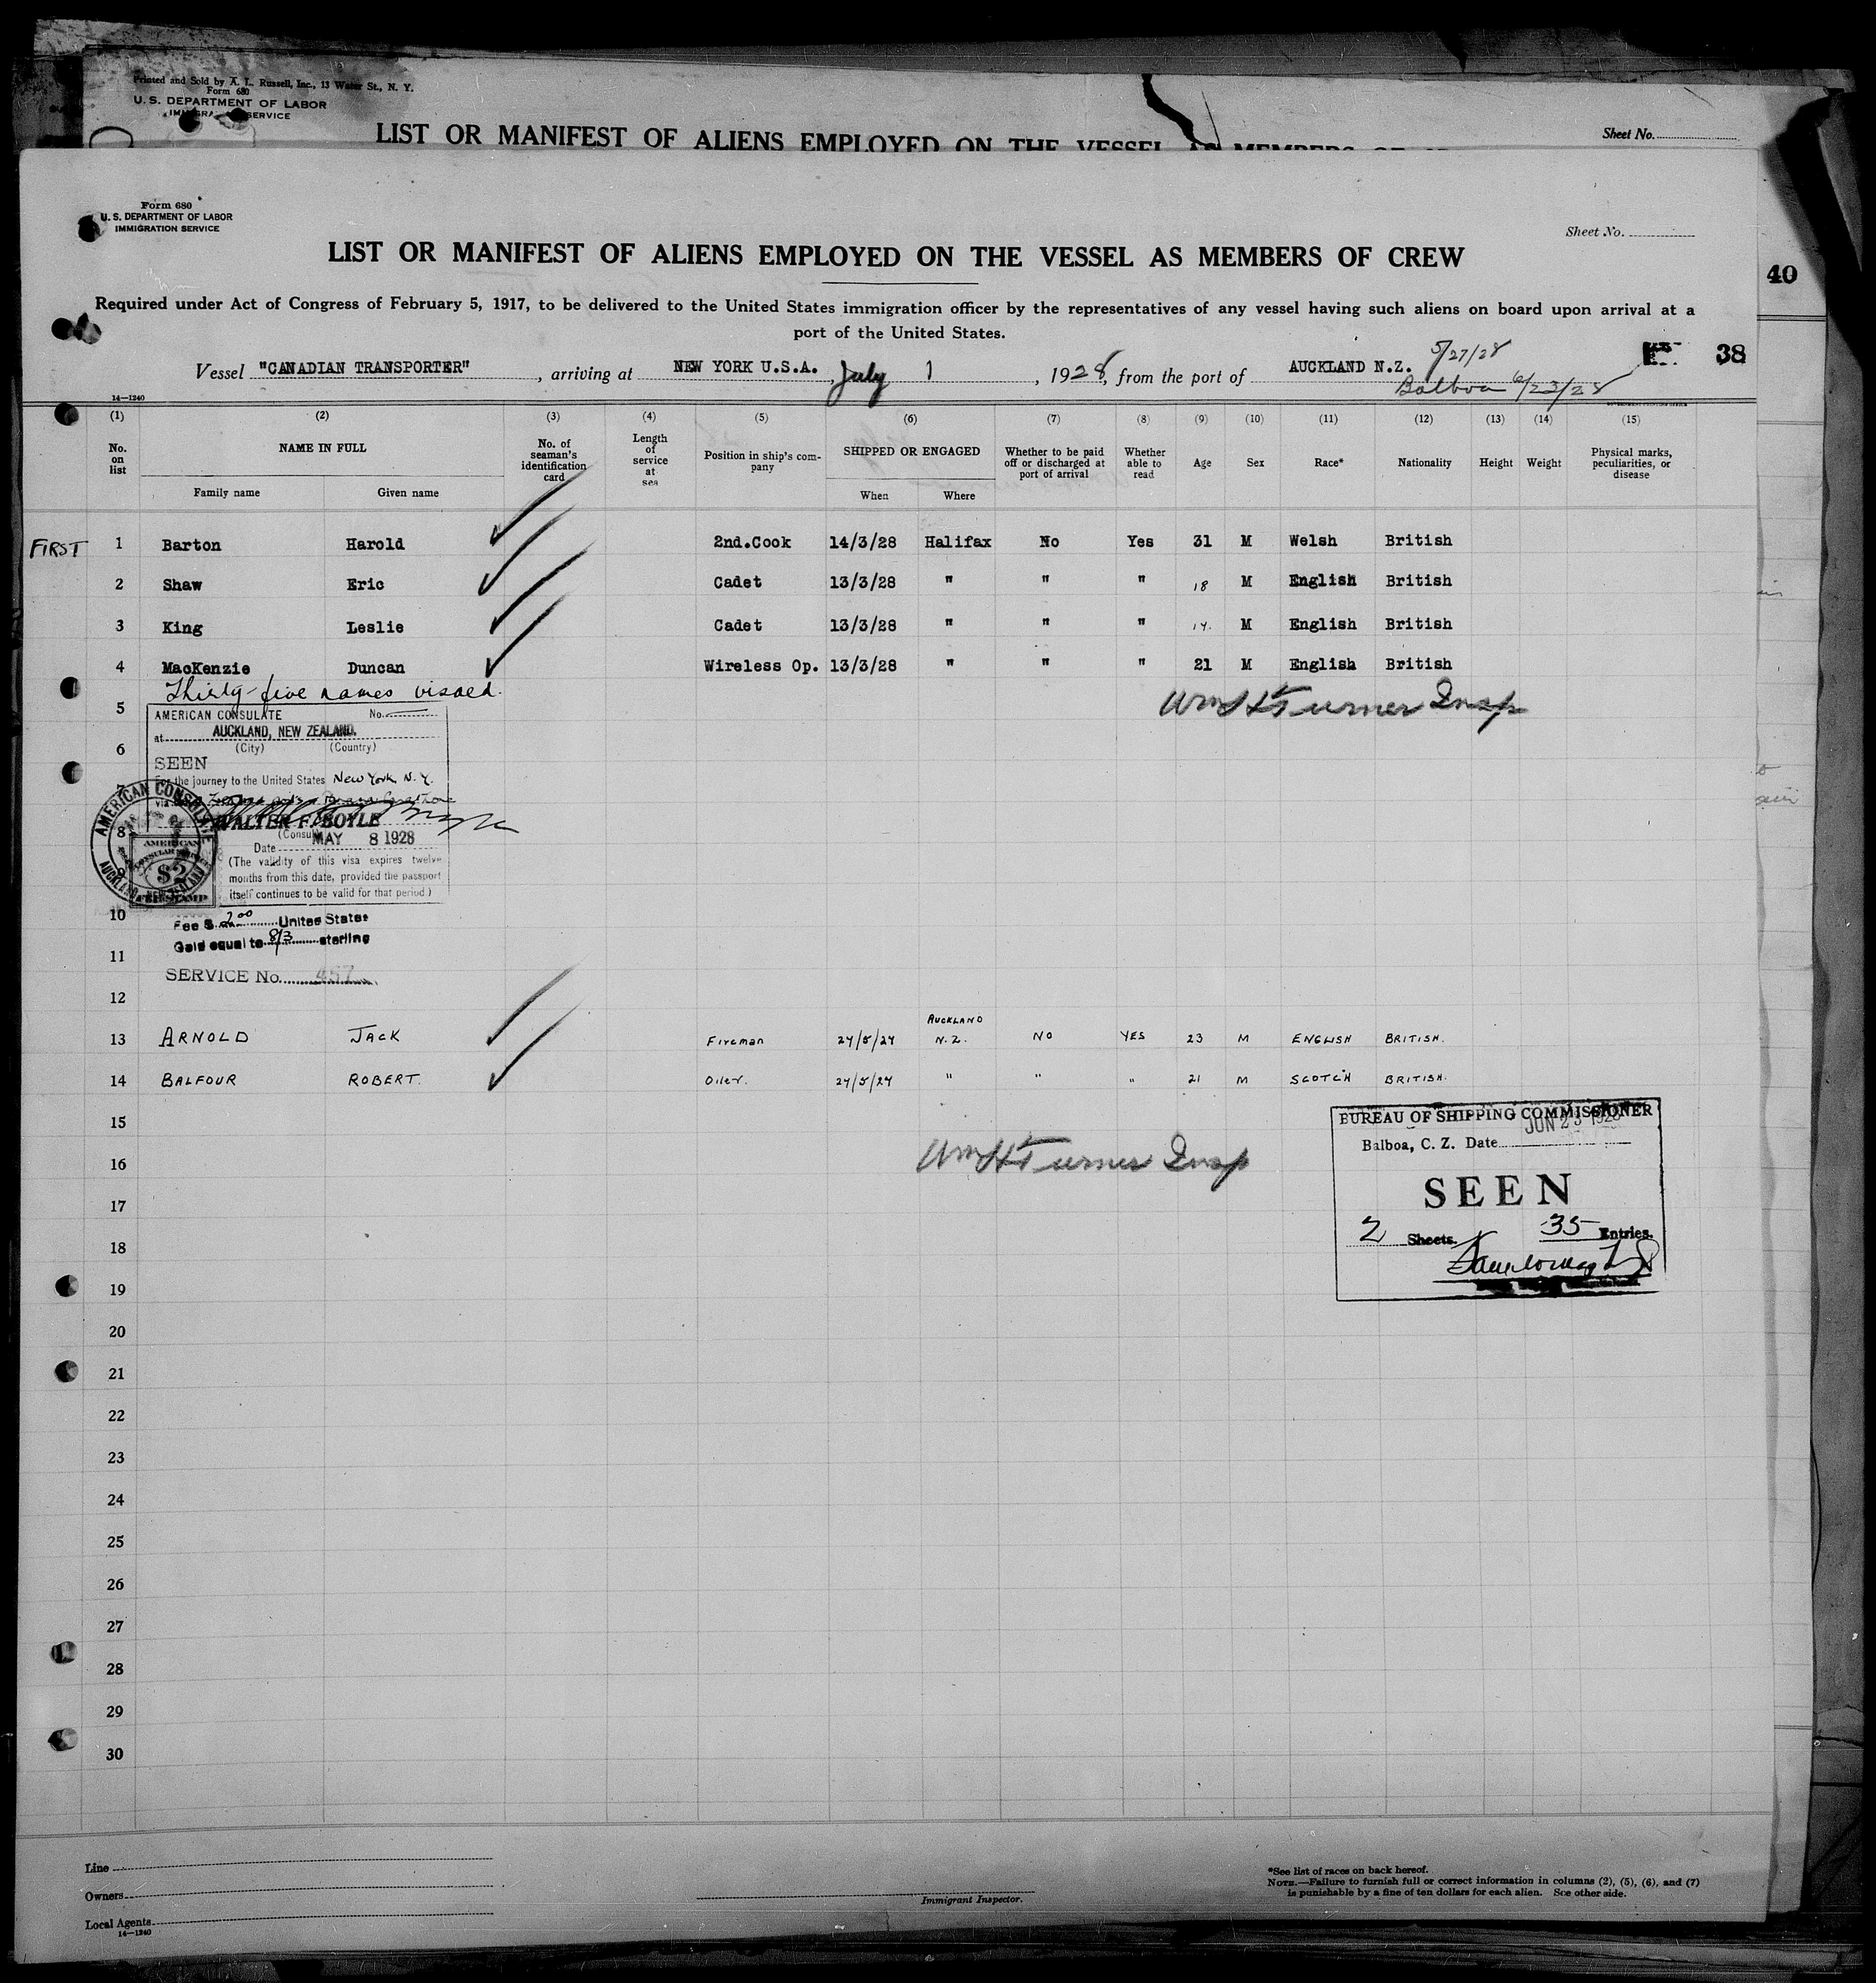 Printed and Sold by A. L. Russell, Inc., 13 Water St., N. Y.
Form 680
U. S. DEPARTMENT OF LABOR
SERVICE
LIST OR MANIFEST OF ALIENS EMPLOYED ON THE VESSEL AS MEMBERS
Sheet No.
40
Form 680
U. S. DEPARTMENT OF LABOR
IMMIGRATION SERVICE
Sheet No.
LIST OR MANIFEST OF ALIENS EMPLOYED ON THE VESSEL AS MEMBERS OF CREW
Required under Act of Congress of February 5, 1917, to be delivered to the United States immigration officer by the representatives of any vessel having such aliens on board upon arrival at a
port of the United States.
Vessel "CANADIAN TRANSPORTER", arriving at NEW YORK U.S.A. July 1, 1928, from the port of AUCKLAND N.Z. 5/27/28
Balboa 6/23/28
38
14—1240
(1) (2) (3) (4) (5) (6) (7) (8) (9) (10) (11) (12) (13) (14) (15)
No. on list NAME IN FULL No. of seaman's identification card Length of service at sea Position in ship's company SHIPPED OR ENGAGED Whether to be paid off or discharged at port of arrival Whether able to read Age Sex Race* Nationality Height Weight Physical marks, peculiarities, or disease
Family name Given name When Where
FIRST 1 Barton Harold 2nd.Cook 14/3/28 Halifax No Yes 31 M Welsh British
2 Shaw Eric Cadet 13/3/28 " " " 18 M English British
3 King Leslie Cadet 13/3/28 " " " M English British
4 MacKenzie Duncan Wireless Op. 13/3/28 " " " 21 M English British
Thirty-five names visaed.
5 Wm H Turner Insp
AMERICAN CONSULATE No.
at AUCKLAND, NEW ZEALAND.
(City) (Country)
6
SEEN
For the journey to the United States New York, N.Y.
7
via
WALTER F. BOYLE
8
(Consul)
Date MAY 8 1928
(The validity of this visa expires twelve
months from this date, provided the passport
itself continues to be valid for that period.)
9
AMERICAN CONSULATE
AUCKLAND, NEW ZEALAND
AMERICAN
CONSULAR SERVICE
$2
FEE STAMP
10
Fee $ 2.00 United States
Gold equal to 8/3 sterling
11
SERVICE No. 457
12
13 ARNOLD JACK Fireman 24/5/24 AUCKLAND N.Z. NO YES 23 M ENGLISH BRITISH.
14 BALFOUR ROBERT. Oiler. 24/5/24 " " " 21 M SCOTCH BRITISH.
15
BUREAU OF SHIPPING COMMISSIONER
Balboa, C. Z. Date JUN 23 1928
16 Wm H Turner Insp
SEEN
17
2 Sheets. 35 Entries.
18
19
20
21
22
23
24
25
26
27
28
29
30
Line
Owners
Local Agents
14—1240
Immigrant Inspector.
*See list of races on back hereof.
NOTE.—Failure to furnish full or correct information in columns (2), (5), (6), and (7)
is punishable by a fine of ten dollars for each alien. See other side.